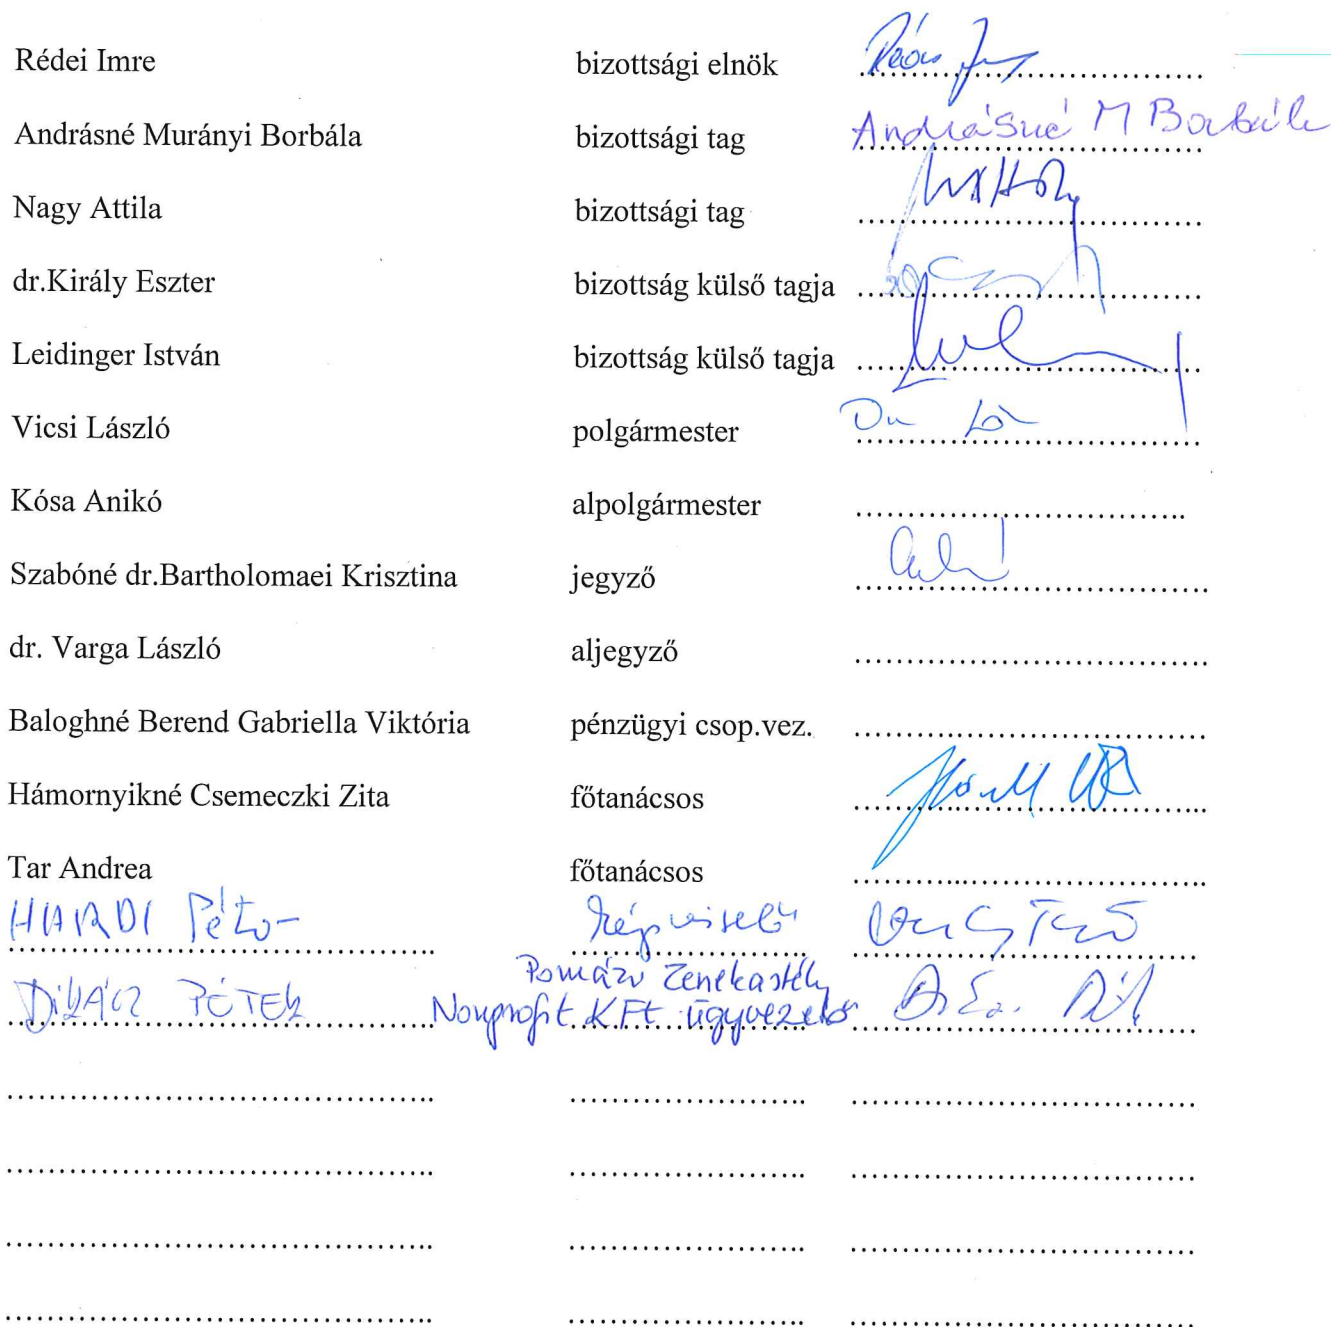 Rédei Imre bizottsági elnök ........................................
Andrásné Murányi Borbála bizottsági tag Andrásné M Borbála
Nagy Attila bizottsági tag ........................................
dr.Király Eszter bizottság külső tagja ........................................
Leidinger István bizottság külső tagja ........................................
Vicsi László polgármester ........................................
Kósa Anikó alpolgármester ........................................
Szabóné dr.Bartholomaei Krisztina jegyző ........................................
dr. Varga László aljegyző ........................................
Baloghné Berend Gabriella Viktória pénzügyi csop.vez. ........................................
Hámornyikné Csemeczki Zita főtanácsos ........................................
Tar Andrea főtanácsos ........................................
HARDI Péter képviselő
PÉTER Pomázi Zenekastély
Nonprofit KFt ügyvezető